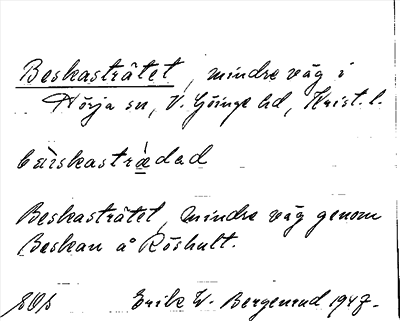 Beskasträtet, mindre väg i
Hörja sn, V. Göinge hd, Krist. l.
bæiskastrædad
Beskasträtet, mindre väg genom
Beskan å Röshult.
Erik W. Bergenrud 1947.